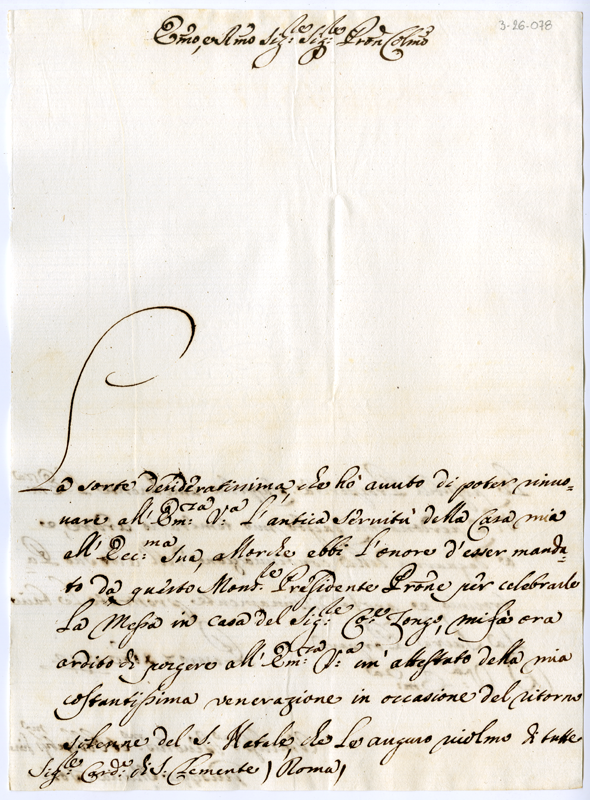 3-26-078
Em̃o, e Rm̃o Sig:re Sig:re Pron̄ Colm̃o
La sorte desideratissima, che hò avuto di poter rinuo=
vare all'Em:za V:a l'antica servitù della Casa mia
all'Ecc:ma Sua, allorche ebbi l'onore d'esser manda=
to dà questo Mons:re Presidente Prōne per celebrarle
la Messa in casa del Sig:re Co:e Zongo, mi fà ora
ardito di porgere all'Em:za V:a un'attestato della mia
costantissima venerazione in occasione del ritorno
solenne del S. Natale, che Le auguro di tutte
Sig:re Card:e di S: Clemente ) Roma )